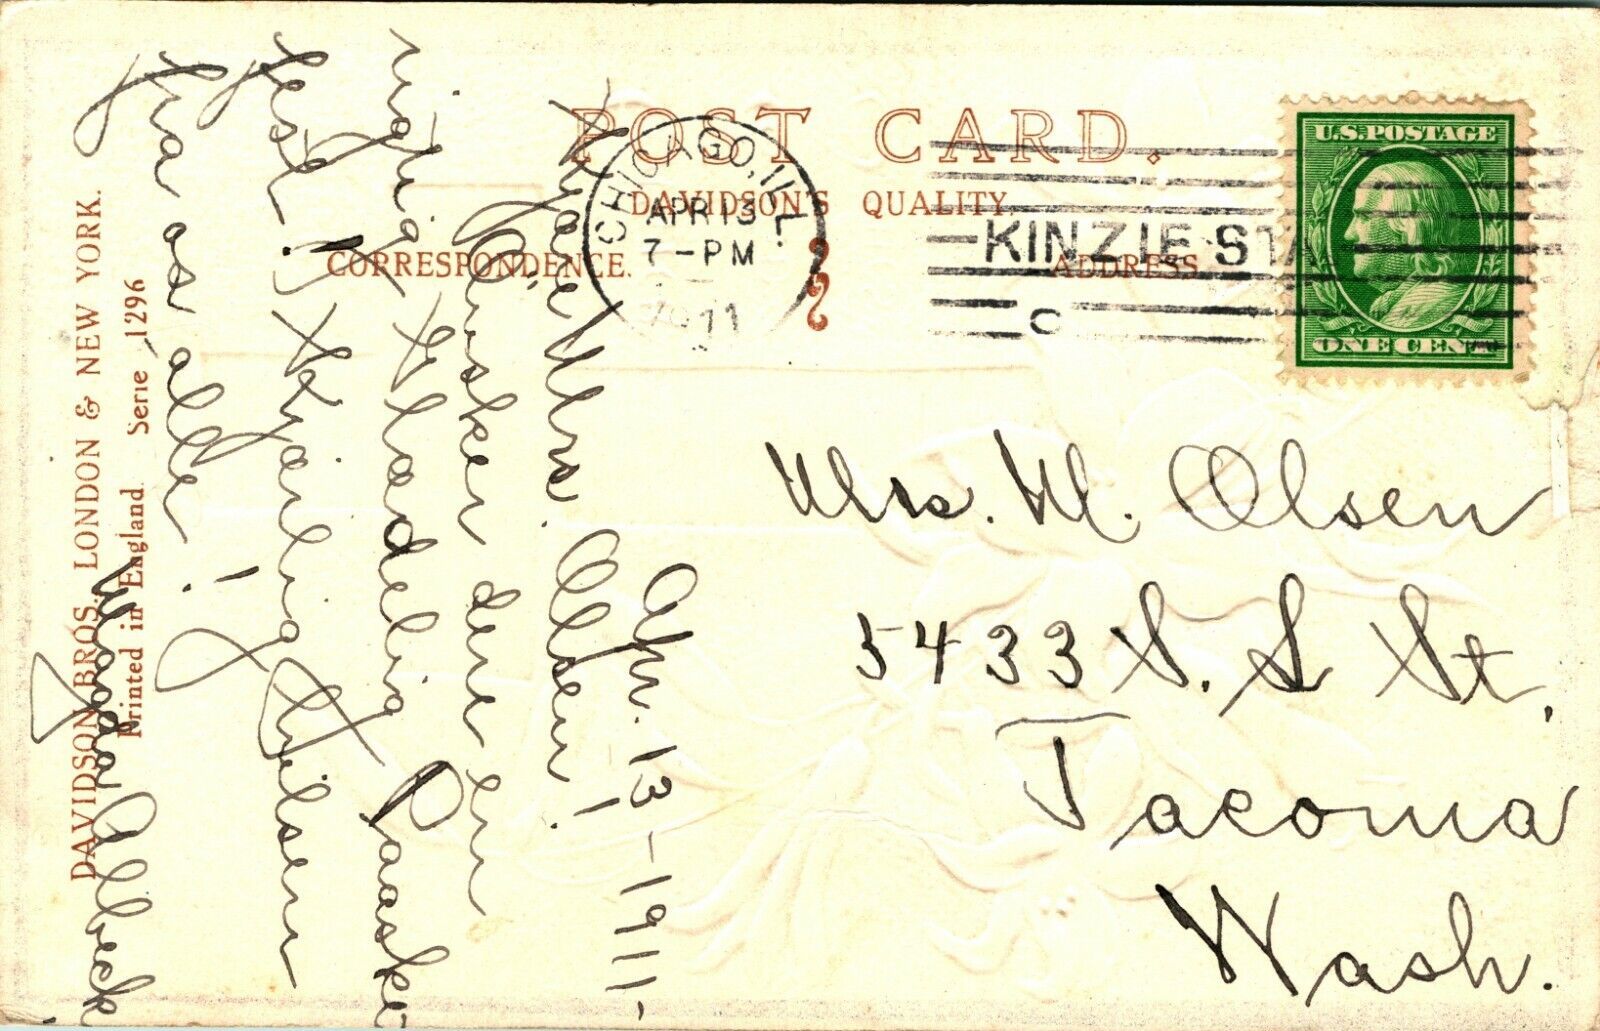 POST CARD.
DAVIDSON'S QUALITY
CORRESPONDENCE.
ADDRESS
CHICAGO, ILL.
APR 13
7-PM
1911
KINZIE STA
U.S. POSTAGE
ONE CENT
Apr. 13-1911.
Kjære Mrs. Olsen!
Önsker dere en
rigtig glædelig Paaske
fest! Kjærlig hilsen
fra os alle!
Magda Albeck
Mrs. M. Olsen
5433 S. L St.
Tacoma
Wash.
DAVIDSON BROS. LONDON & NEW YORK.
Printed in England. Serie 1296